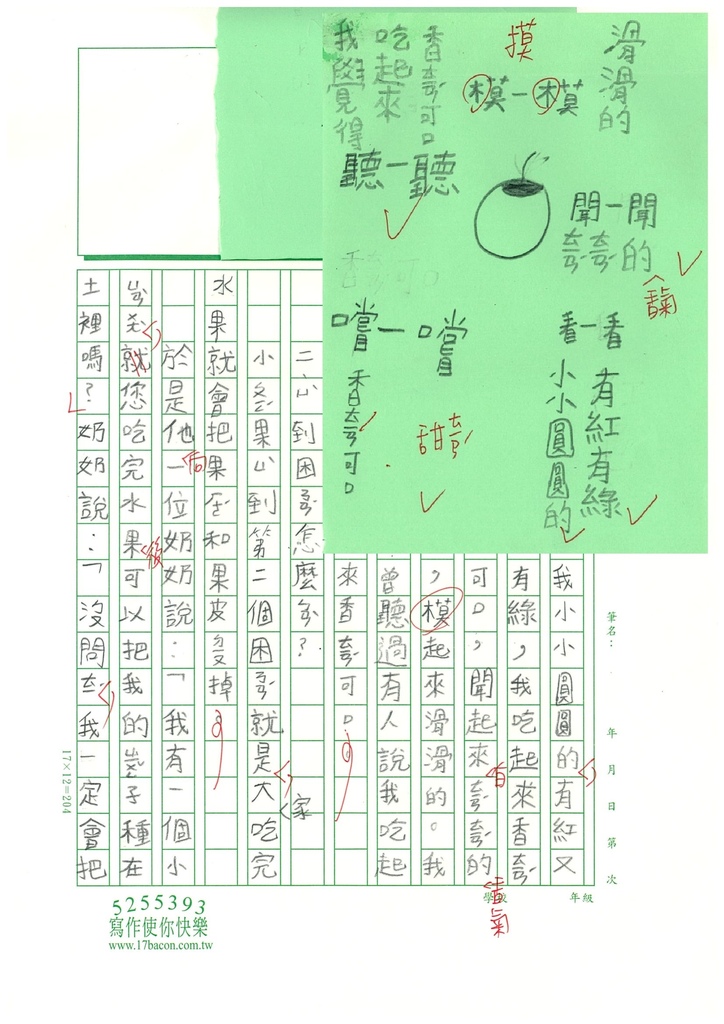 滑滑的
摸
模一模
香ㄊㄧㄢˊ可口
吃起來
我覺得
聽一聽
聞一聞
的
香氣
看一看
有紅有綠
小小圓圓的
嚐一嚐
可口
甜
我小小圓圓的有紅又
有綠，我吃起來香
可口，聞起來
的
香氣
，模起來滑滑的。我
曾聽過有人說我吃起
來香
可口。
二
到困
怎麼
？
小
果
到第二個困
就是大吃完
家
水果就會把果
和果皮
掉
於是他
向
一位奶奶說：「我有一個小
就您吃完水果
後
可以把我的
子種在
土裡嗎？奶奶說：「沒問
我一定會把
筆名：
年 月 日 第 次
年級
17×12=204
5255393
寫作使你快樂
www.17bacon.com.tw